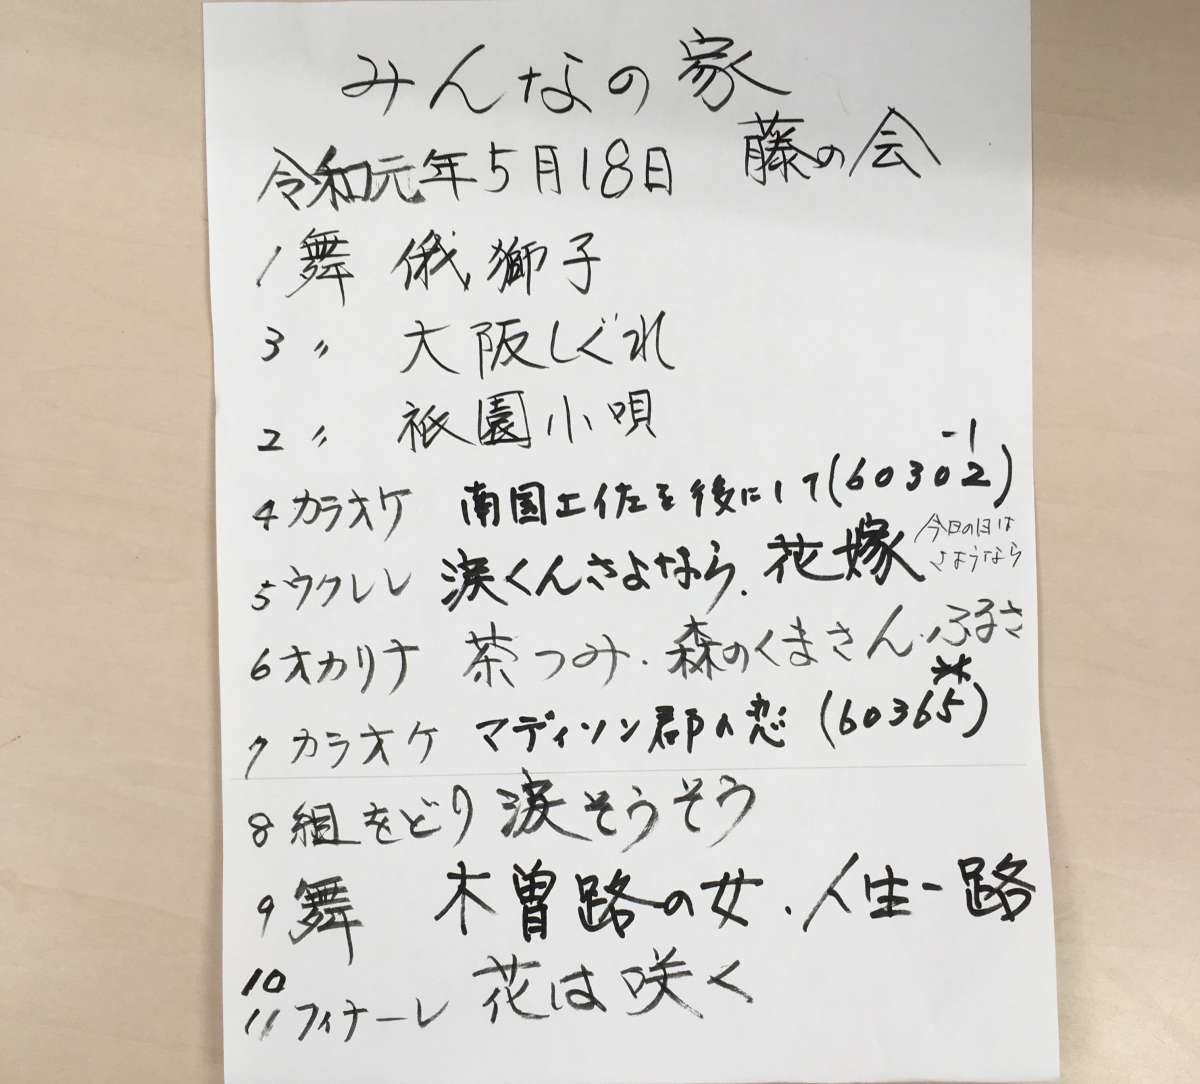 みんなの家
藤の会
令和元年5月18日
1 舞 俄獅子
3 〃 大阪しぐれ
2 〃 祇園小唄
4 カラオケ 南国土佐を後にして(6030-1 2)
5 ウクレレ 涙くんさよなら、花嫁 今日の日は
さようなら
6 オカリナ 茶つみ・森のくまさん・ふるさ
7 カラオケ マディソン郡の恋 (60365)
8 組をどり 涙そうそう
9 舞 木曽路の女、人生一路
10
11 フィナーレ 花は咲く